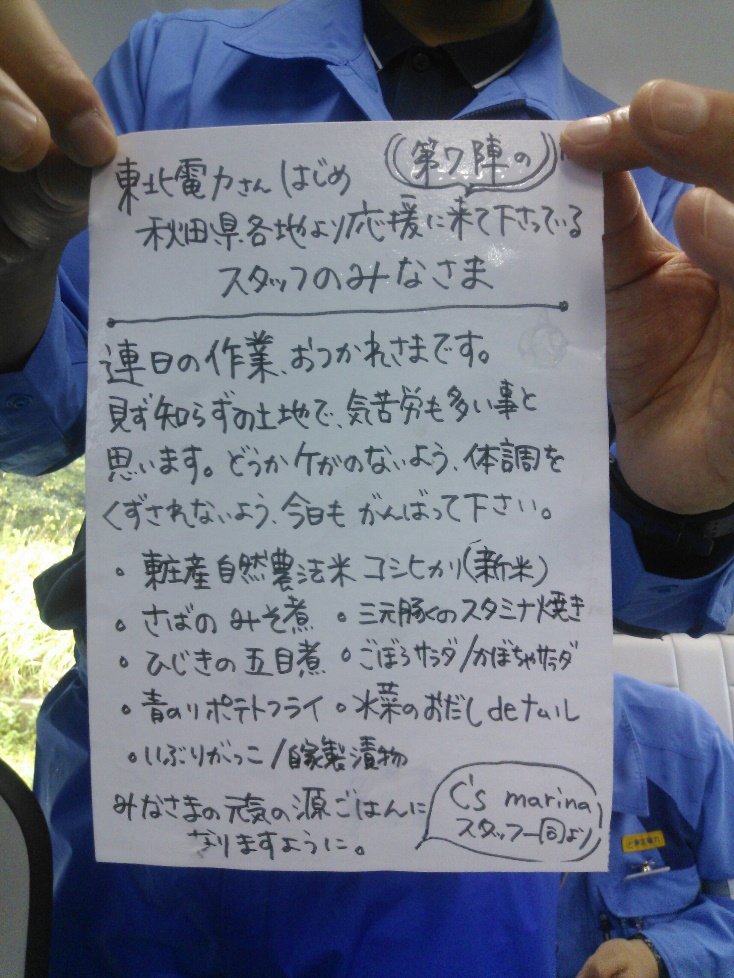 東北電力さんはじめ
第7陣の
秋田県各地より応援に来て下さっている
スタッフのみなさま
連日の作業、おつかれさまです。
見ず知らずの土地で、気苦労も多い事と
思います。どうかケガのないよう、体調を
くずされないよう、今日も がんばって下さい。
・東庄産自然農法米 コシヒカリ(新米)
・さばの みそ煮 ・三元豚のスタミナ焼き
・ひじきの五目煮 ・ごぼうサラダ/かぼちゃサラダ
・青のりポテトフライ ・水菜のおだし
・いぶりがっこ/自家製漬物
みなさまの元気の源ごはんに
なりますように。
C's marina
スタッフ一同より